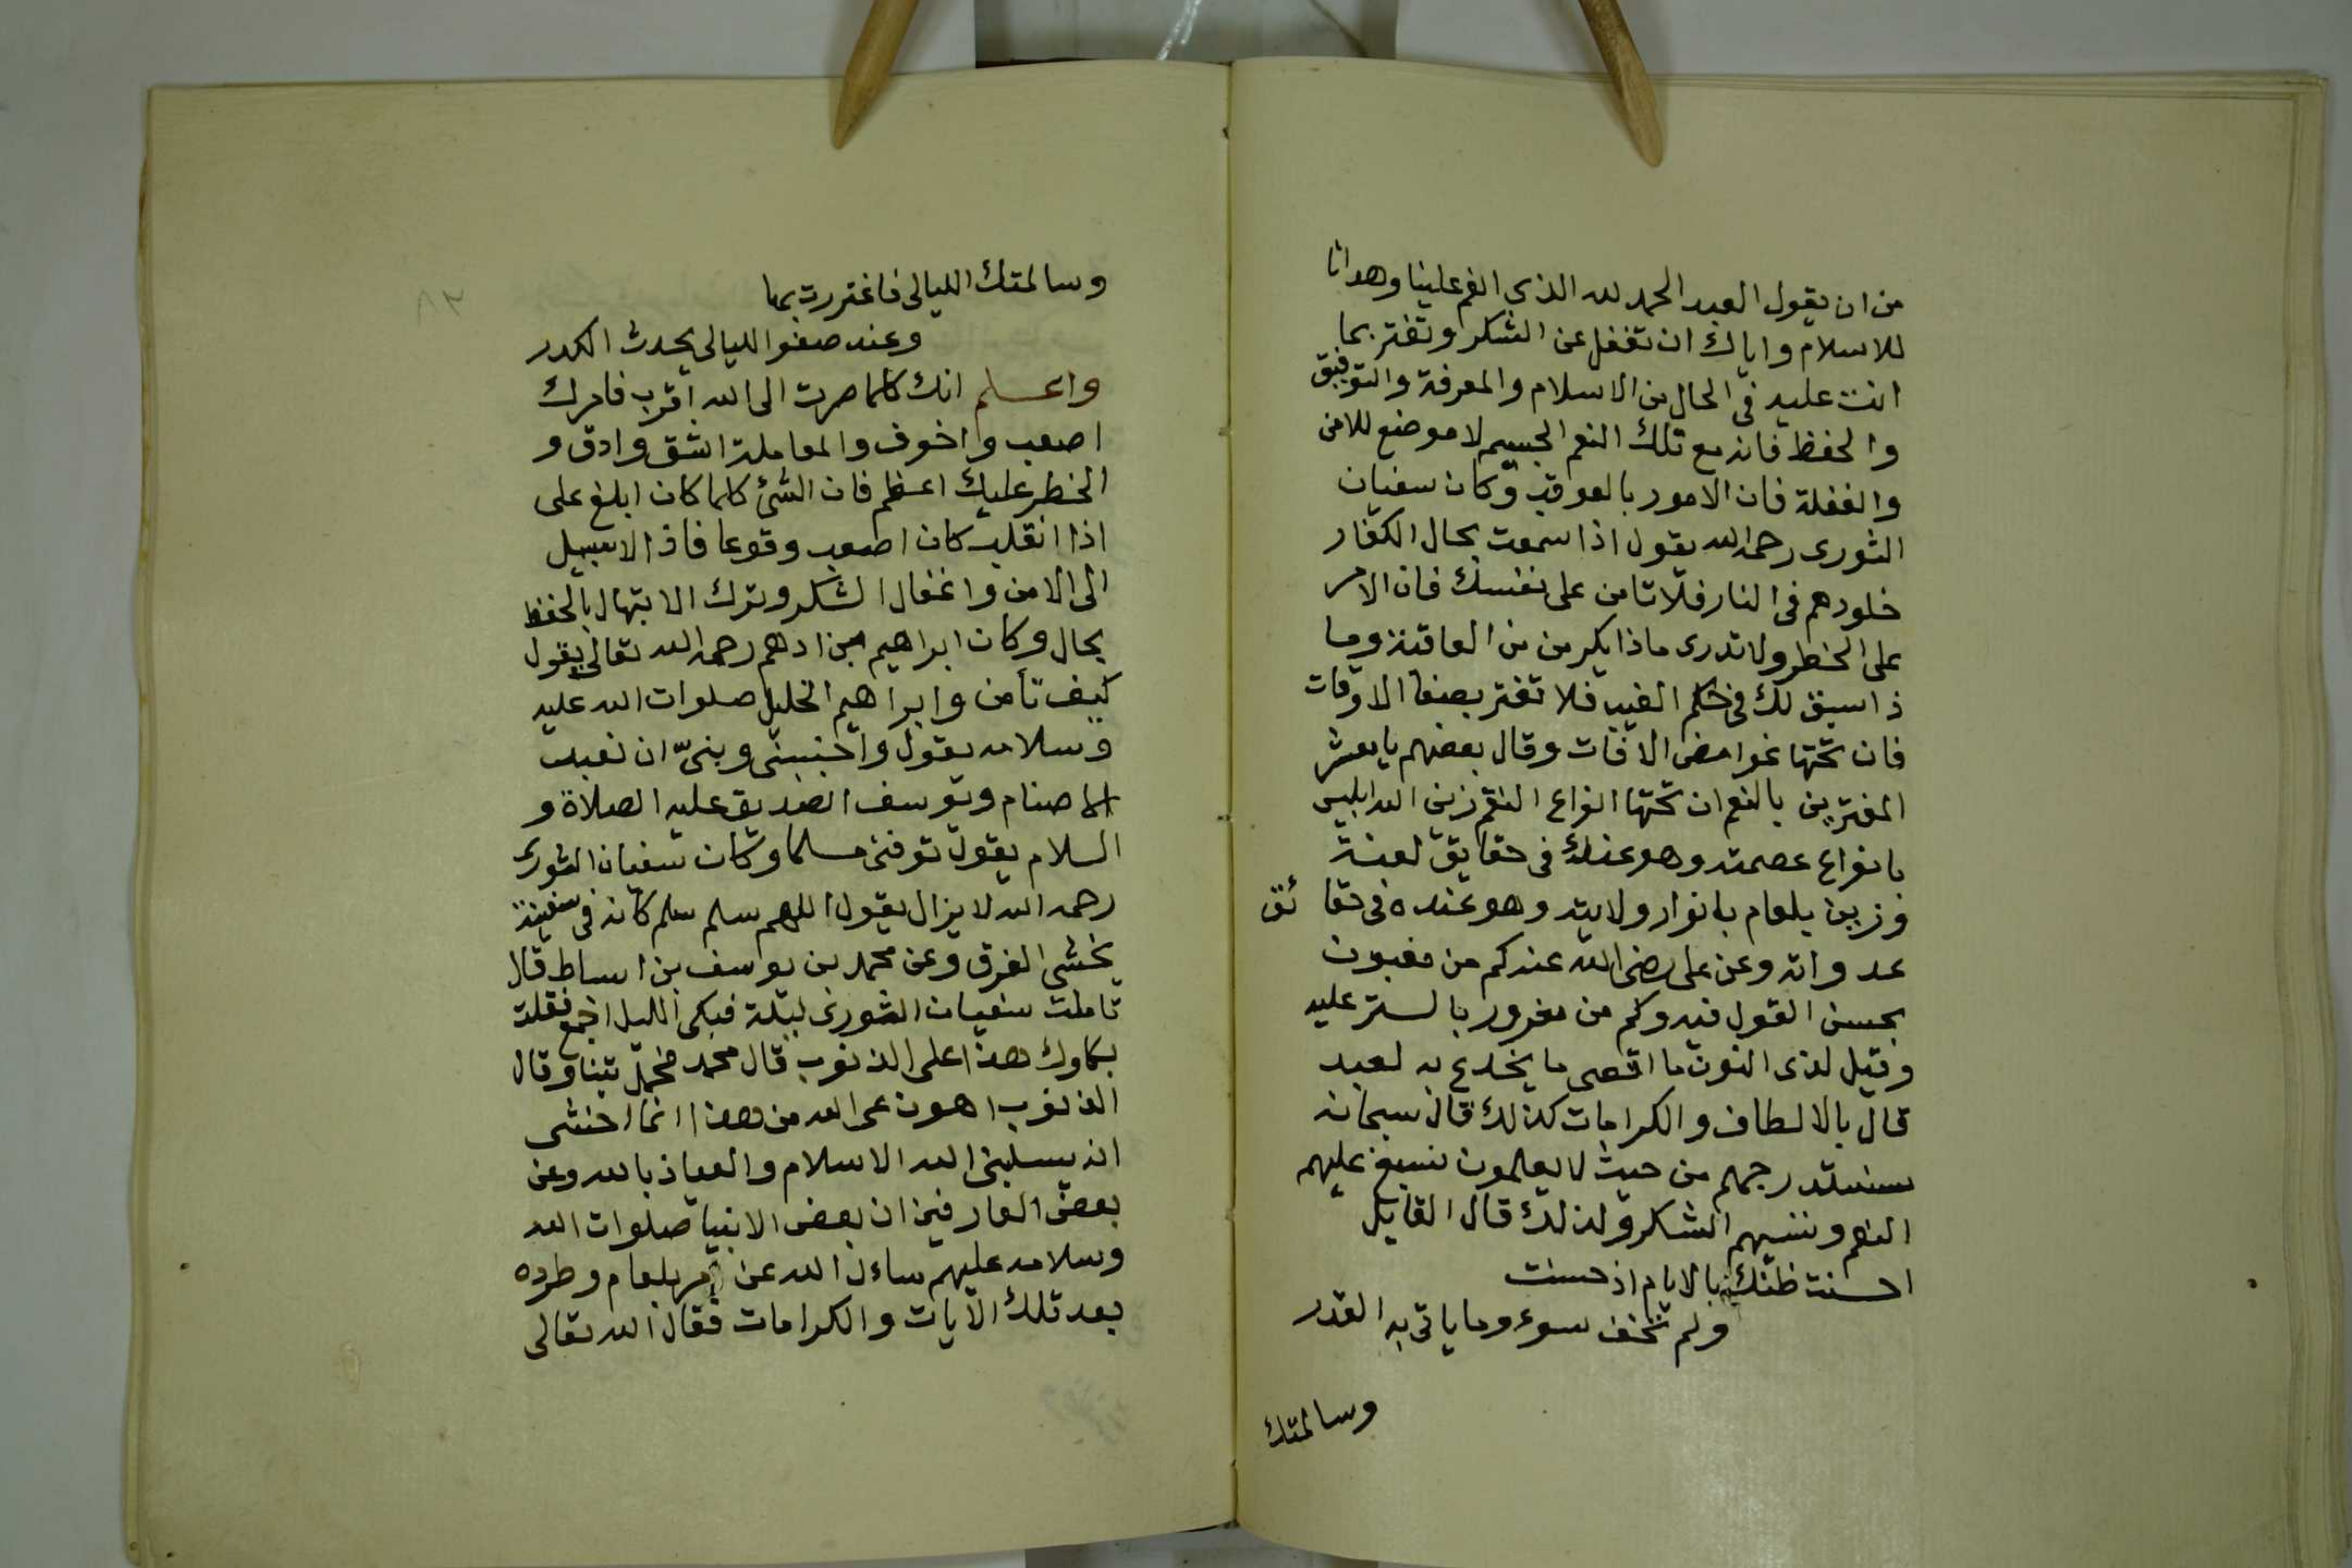 من ان يقول العبد الحمد لله الذي انعم علينا وهدانا
للاسلام واياك ان تغفل عن الشكر وتغتر بما
انت عليه في الحال من الاسلام والمعرفة والتوفيق
والحفظ فانه مع تلك النعم الجسيم لا موضع للامن
والغفلة فان الامور بالعواقب وكان سفيان
الثوري رحمه الله يقول اذا سمعت بحال الكفار
خلودهم في النار فلا تامن على نفسك فان الامر
على الخطر ولا تدرى ماذا يكر من من العاقبة وما
ذا سبق لك في حكم الغيب فلا تغتر بصفا الاوقات
فان تحتها غوامض الافات وقال بعضهم يا معشر
المغترين بالنعم ان تحتها انواع النقم زين الله ابليس
بانواع عصمته وهو عندك في حقايق لعنة
وزين بلعام بانوار ولايته وهو عنده في حقائق
عدواته وعن على رضى الله عندكم من مغبون
بحسن القول فيه وكم من مغرور بالستر عليه
وقيل لذى النون ما اقصى ما يخدع به لعبد
قال بالالطاف والكرامات كذلك قال سبحانه
سنستدرجهم من حيث لا يعلمون نسبغ عليهم
النعم وننسيهم الشكر ولذلك قال القايل
احسنت ظنك بالايام اذ حسنت
ولم تخف سوء وما ياتى به القدر
وسالمتك
٨٢
وسالمتك الليالى فاغتررت بها
وعند صفو الليالى يحدث الكدر
واعلم انك كلما صرت الى الله اقرب فامرك
اصعب واخوف والمعاملة اشق وادق و
الخطر عليك اعظم فان الشئ كلما كان ابلغ على
اذا انقلب كان اصعب وقوعا فاذ الا سبيل
الى الامن واغفال الشكر وترك الابتهال بالحفظ
بحال وكان ابراهيم بن ادهم رحمه الله تعالى يقول
كيف تأمن وابراهيم الخليل صلوات الله عليه
وسلامه يقول واجنبني وبنيّ ان نعبد
الاصنام ويوسف الصديق عليه الصلاة و
السلام يقول توفنى مسلما وكان سفيان الثورى
رحمه الله لا يزال يقول اللهم سلم سلم كانه في سفينة
يخشى الغرق وعن محمد بن يوسف بن اساط قال
تاملت سفيان الثورى ليلة فبكى الليل اجمع فقلت
بكاوك هذا على الذنوب قال محمد تبنا وقال
الذنوب اهون على الله من هذا انما اخشى
ان يسلبنى الله الاسلام والعياذ بالله وعن
بعض العارفين ان بعض الانبيا صلوات الله
وسلامه عليهم ساءل الله عن امر بلعام وطرده
بعد تلك الآيات والكرامات فقال الله تعالى